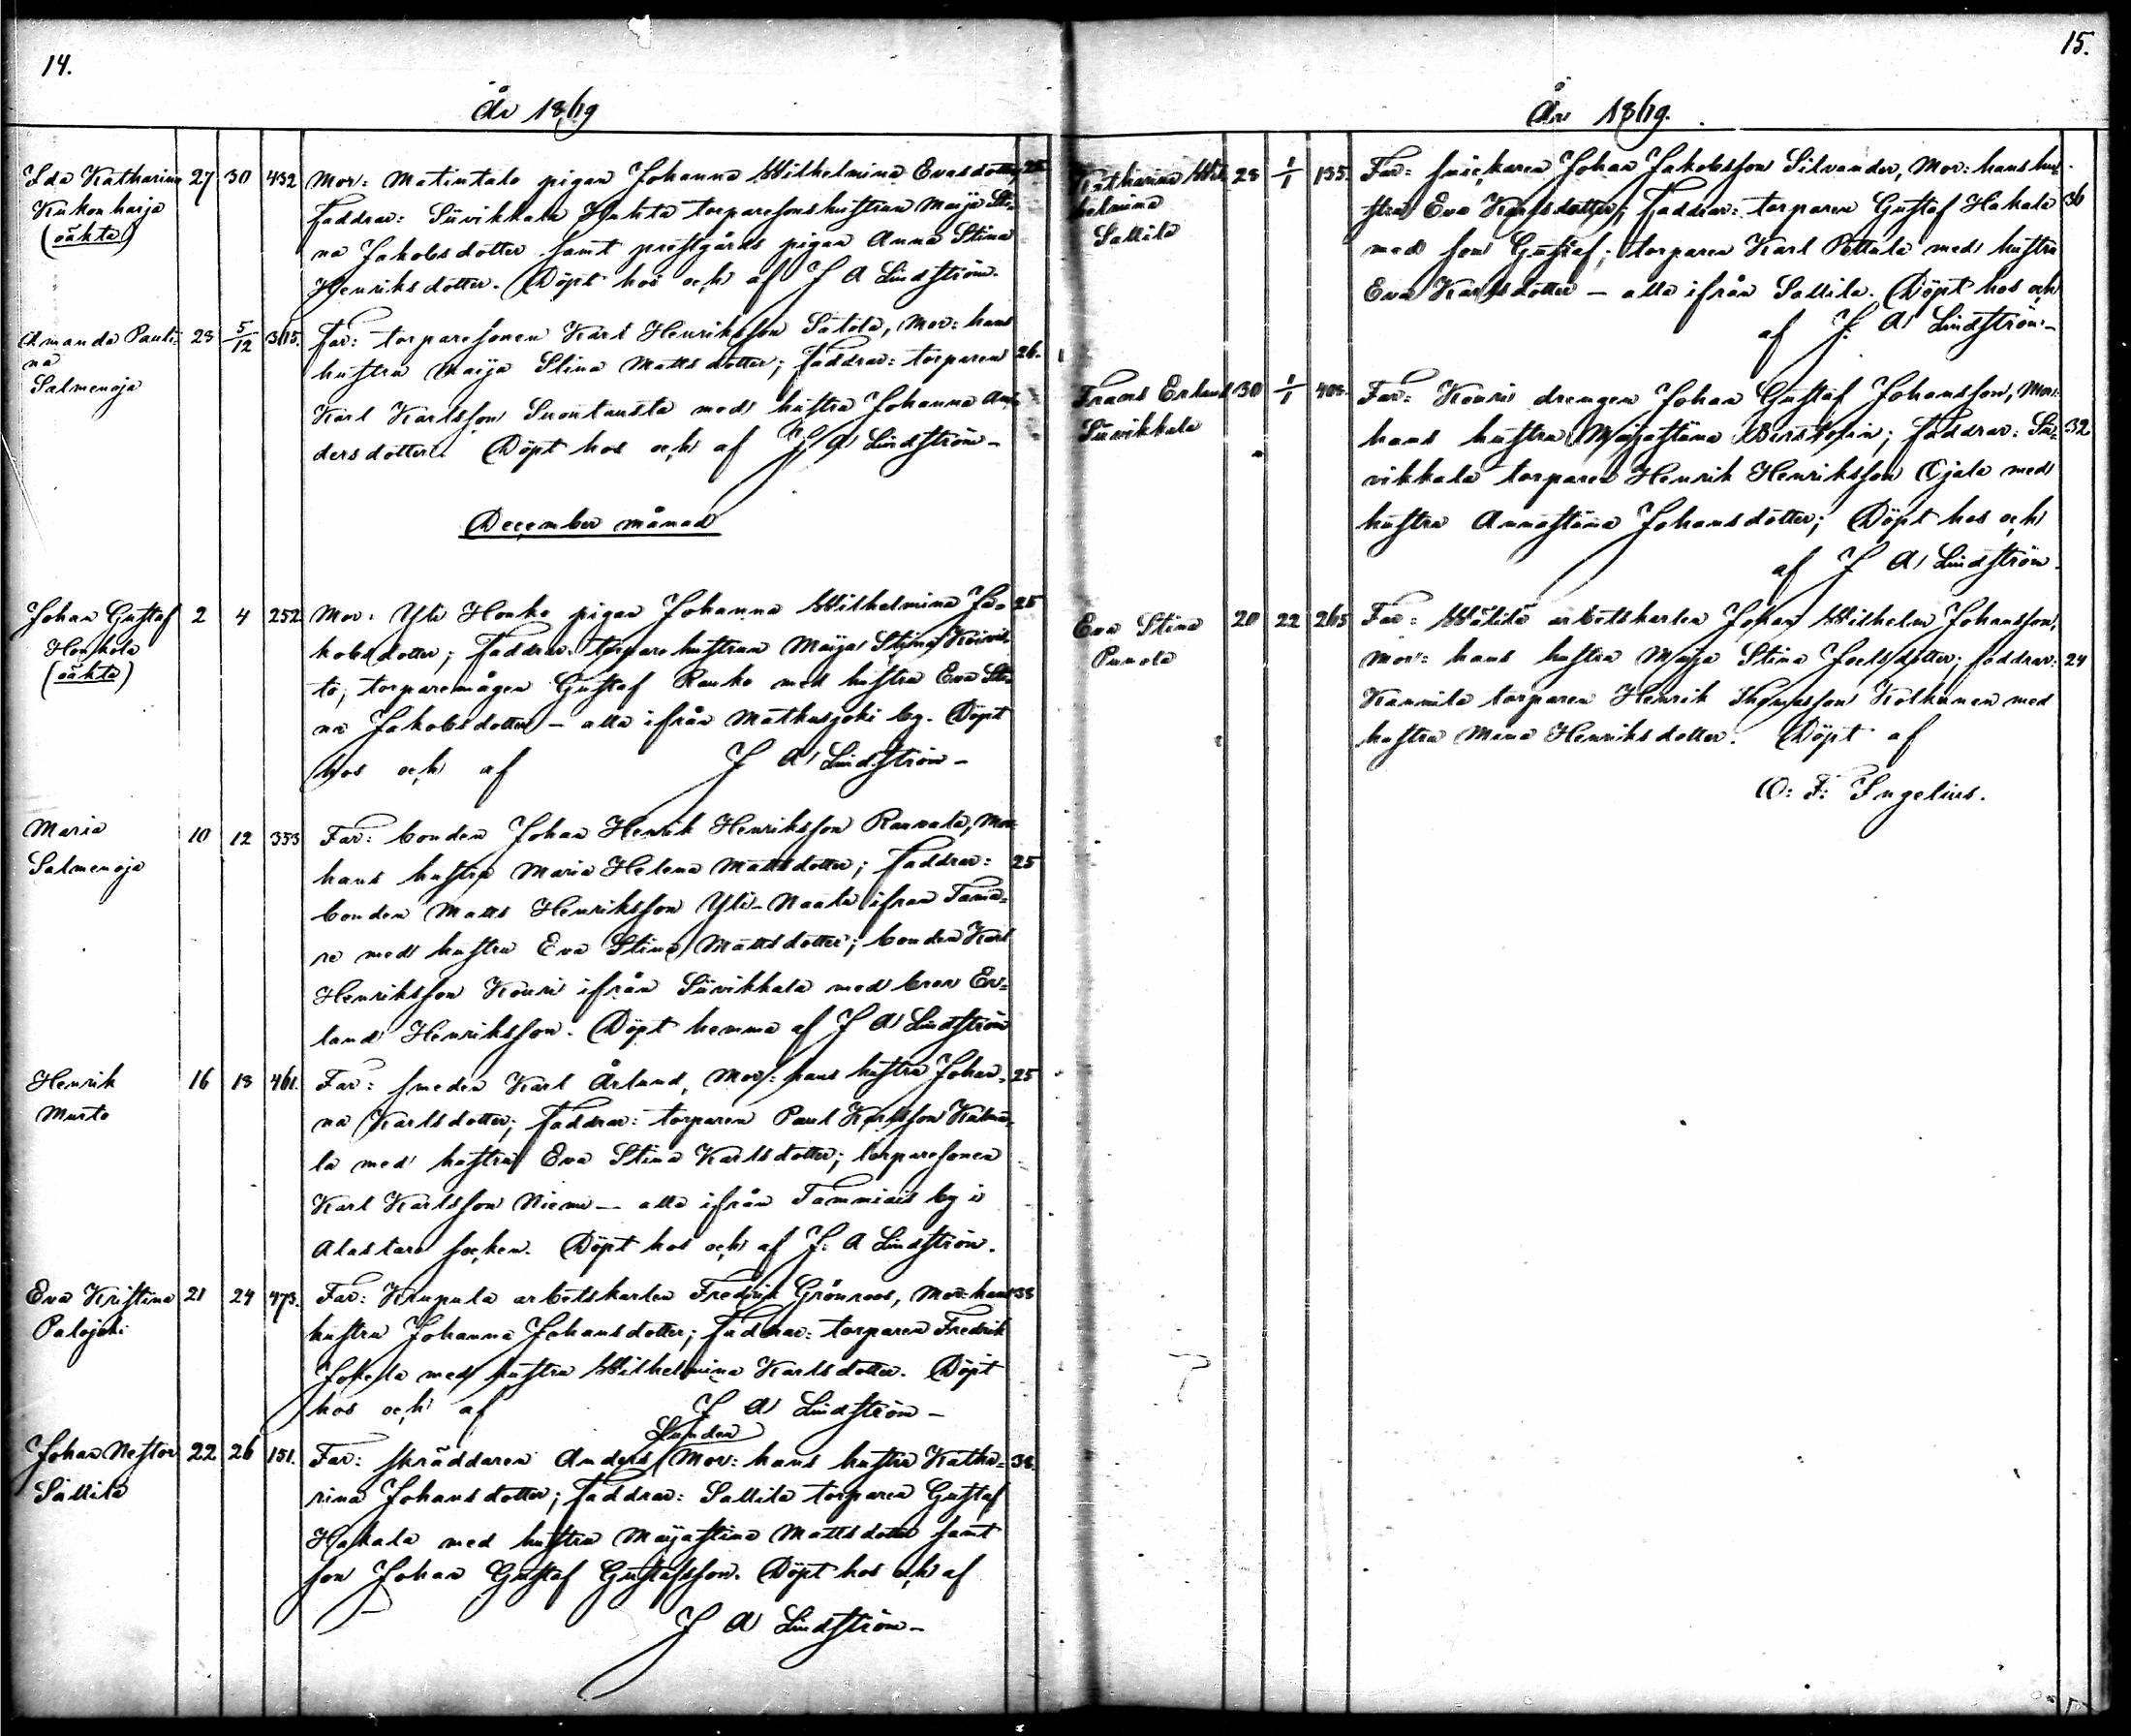 14.
År 1869
Ida Katharina 27 30 432 Mor: Matintalo pigan Johanna Wilhelmina Evasdotter,
Kukonharja faddrar: Siivikkala torparesonshustrun Maija Sti-
(oäkta) na Jakobsdotter samt prestgårds pigan Anna Stina
Henriksdotter. Döpt hos och af J A Lindström.
Amanda Pauli- 28 5/12 315. Far: torparesonen Karl Henriksson Satola, Mor: hans
na hustru Maija Stina Mattsdotter; faddrar: torparen 26.
Salmenoja
Karl Karlsson Suontausta med hustru Johanna An-
dersdotter. Döpt hos och af J A Lindström-
December månad
Johan Gustaf 2 4 252 Mor: Yli Honko pigan Johanna Wilhelmina Ja- 25
Honkola kobsdotter; faddrar: torparehustrun Maija Stina Koivis-
(oäkta) to; torparemågen Gustaf Rauko med hustru Eva Sti-
na Jakobsdotter - alla ifrån Mathusjoki by. Döpt
hos och af J A Lindström-
Maria 10 12 353 Far: bonden Johan Henrik Henriksson Rauvala, Mor:
Salmenoja hans hustru Maria Helena Mattsdotter; faddrar: 25
bonden Matts Henriksson Yli-Naata ifran Tama-
re med hustru Eva Stina Mattsdotter; bonden Karl
Henriksson Kouri ifrån Siivikkala med bror Er-
land Henriksson. Döpt hemma af J A Lindström
Henrik 16 18 461. Far: smeden Karl Ärlund, Mor: hans hustru Johan- 25
Mursto na Karlsdotter; faddrar: torparen Paul Karlsson
la med hustru Eva Stina Karlsdotter; torparesonen
Karl Karlsson Niemi - alla ifrån Tammiais by i
Alastaro socken. Döpt hos och af J. A Lindström.
Eva Kristina 21 24 473. Far: Krupula arbetskarlen Fredrik Grönroos, Mor: hans 38
Palojoki hustru Johanna Johansdotter; faddrar: torparen Fredrik
Jokela med hustru Wilhelmina Karlsdotter. Döpt
hos och af J A Lindström-
Lunden
Johan Nestor 22 26 151. Far: skräddaren Anders Mor: hans hustru Katha- 38.
Sallila rina Johansdotter; faddrar: Sallila torparen Gustaf
Hakala med hustru Maijastina Mattsdotter samt
son Johan Gustaf Gustafsson. Döpt hos och af
J A Lindström-
15.
År 1869.
Katharina Wil- 28 1/1 135. Far: snickaren Johan Jakobsson Silvander, Mor: hans hu-
helmina stru Eva Karlsdotter; faddrar: torparen Gustaf Hakala 36
Sallila med son Gustaf; torparen Karl Pottula med hustru
Eva Karlsdotter - alla ifrån Sallila. Döpt hos och
af J. A Lindström-
Frans Erland 30 1/1 408. Far: Kouri drengen Johan Gustaf Johansson, Mor:
Siivikkala hans hustru Maijastina; faddrar: Sii- 32
vikkala torparen Henrik Henriksson Ojala med
hustru Annastina Johansdotter; Döpt hos och
af J A Lindström.
Eva Stina 20 22 265 Far: Wälilä arbetskarlen Johan Wilhelm Johansson,
Punola Mor: hans hustru Maja Stina Joelsdotter; faddrar: 24
Kannila torparen Henrik Thomasson Kolhinen med
hustru Mina Henriksdotter. Döpt af
O: F: Ingelius.